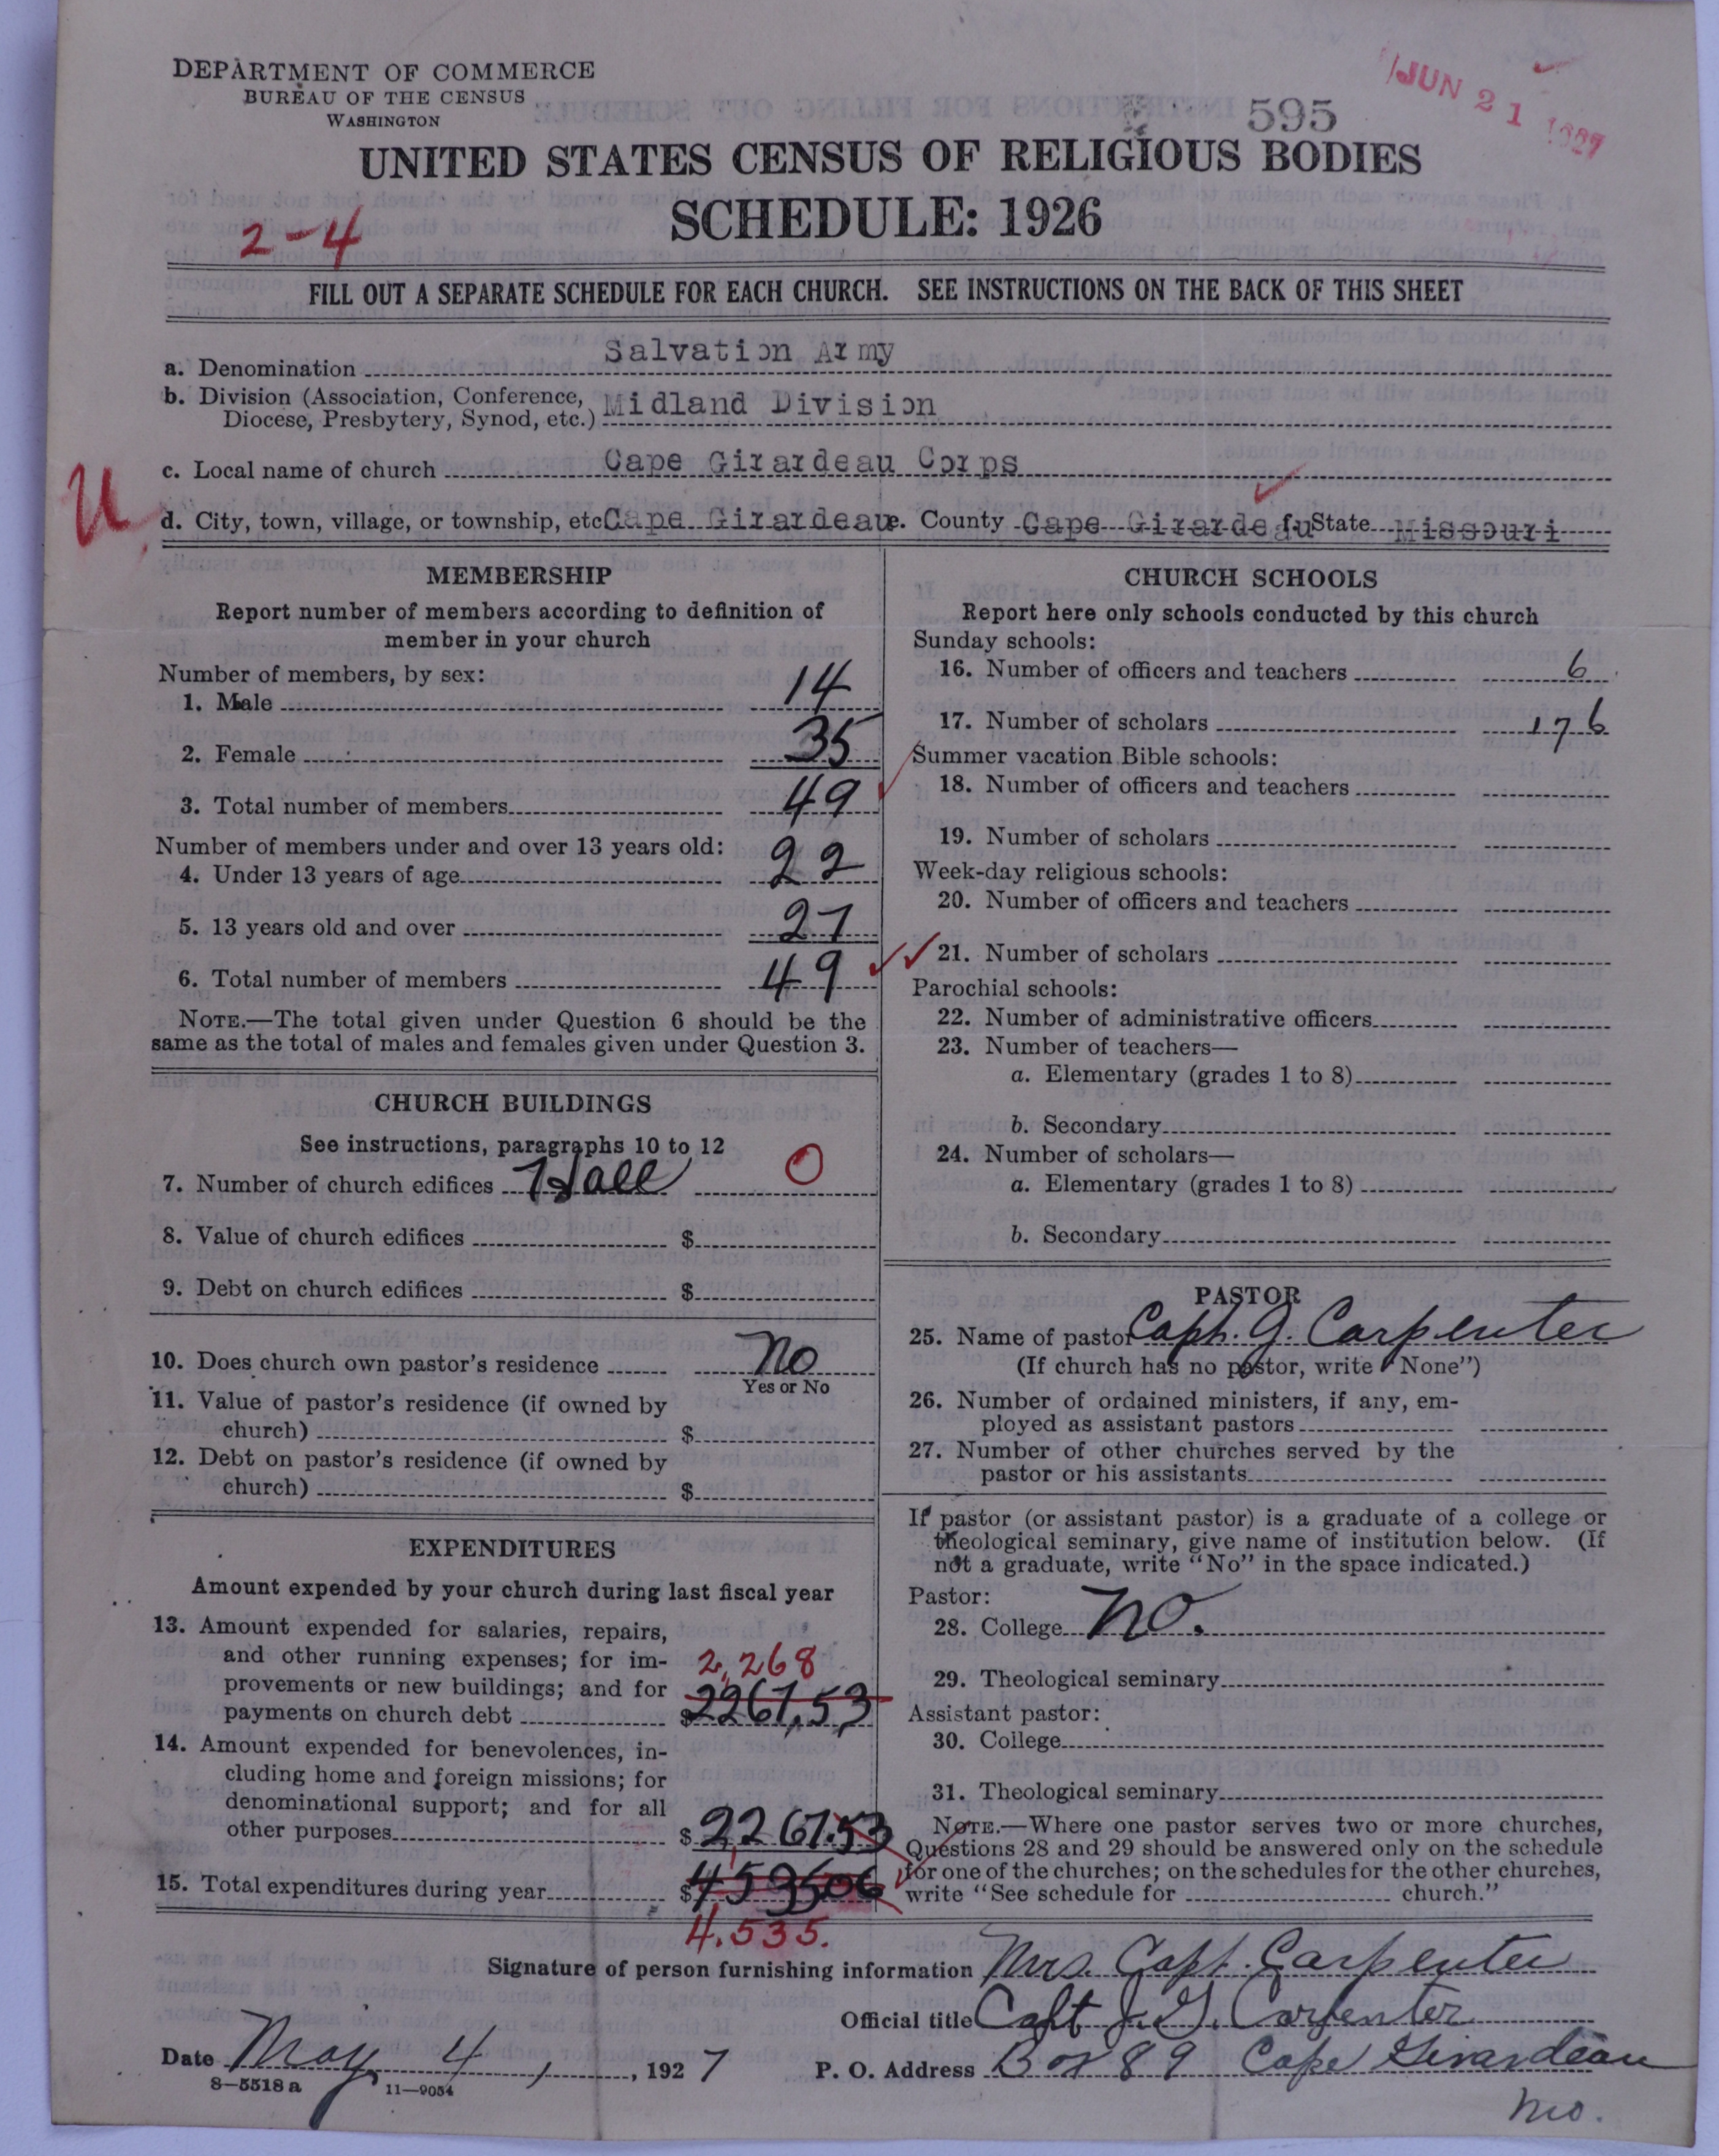 DEPARTMENT OF COMMERCE
BUREAU OF THE CENSUS
WASHINGTON
595
JUN 21 1927
UNITED STATES CENSUS OF RELIGIOUS BODIES
SCHEDULE: 1926
2-4
FILL OUT A SEPARATE SCHEDULE FOR EACH CHURCH. SEE INSTRUCTIONS ON THE BACK OF THIS SHEET
a. Denomination Salvation Army
b. Division (Association, Conference, Diocese, Presbytery, Synod, etc.) Midland Division
c. Local name of church Cape Girardeau Corps
U
d. City, town, village, or township, etc. Cape Girardeau e. County Cape Girardeau f. State Missouri
MEMBERSHIP
Report number of members according to definition of
member in your church
Number of members, by sex:
1. Male 14
2. Female 35
3. Total number of members 49
Number of members under and over 13 years old:
4. Under 13 years of age 22
5. 13 years old and over 27
6. Total number of members 49
NOTE.—The total given under Question 6 should be the
same as the total of males and females given under Question 3.
CHURCH BUILDINGS
See instructions, paragraphs 10 to 12
7. Number of church edifices Hall 0
8. Value of church edifices $
9. Debt on church edifices $
10. Does church own pastor's residence No
Yes or No
11. Value of pastor's residence (if owned by
church) $
12. Debt on pastor's residence (if owned by
church) $
EXPENDITURES
Amount expended by your church during last fiscal year
13. Amount expended for salaries, repairs,
and other running expenses; for im-
provements or new buildings; and for
2,268
payments on church debt $2267.53
14. Amount expended for benevolences, in-
cluding home and foreign missions; for
denominational support; and for all
other purposes $2267.53
15. Total expenditures during year $453506
4,535.
CHURCH SCHOOLS
Report here only schools conducted by this church
Sunday schools:
16. Number of officers and teachers 6
17. Number of scholars 176
Summer vacation Bible schools:
18. Number of officers and teachers
19. Number of scholars
Week-day religious schools:
20. Number of officers and teachers
21. Number of scholars
Parochial schools:
22. Number of administrative officers
23. Number of teachers—
a. Elementary (grades 1 to 8)
b. Secondary
24. Number of scholars—
a. Elementary (grades 1 to 8)
b. Secondary
PASTOR
25. Name of pastor Capt. J. Carpenter
(If church has no pastor, write "None")
26. Number of ordained ministers, if any, em-
ployed as assistant pastors
27. Number of other churches served by the
pastor or his assistants
If pastor (or assistant pastor) is a graduate of a college or
theological seminary, give name of institution below. (If
not a graduate, write "No" in the space indicated.)
Pastor:
28. College No.
29. Theological seminary
Assistant pastor:
30. College
31. Theological seminary
NOTE.—Where one pastor serves two or more churches,
Questions 28 and 29 should be answered only on the schedule
for one of the churches; on the schedules for the other churches,
write "See schedule for church."
Signature of person furnishing information Mrs. Capt. Carpenter
Official title Capt J. G. Carpenter
Date May 4, 1927 P. O. Address Box 89 Cape Girardeau
Mo.
8-5518 a 11-9054